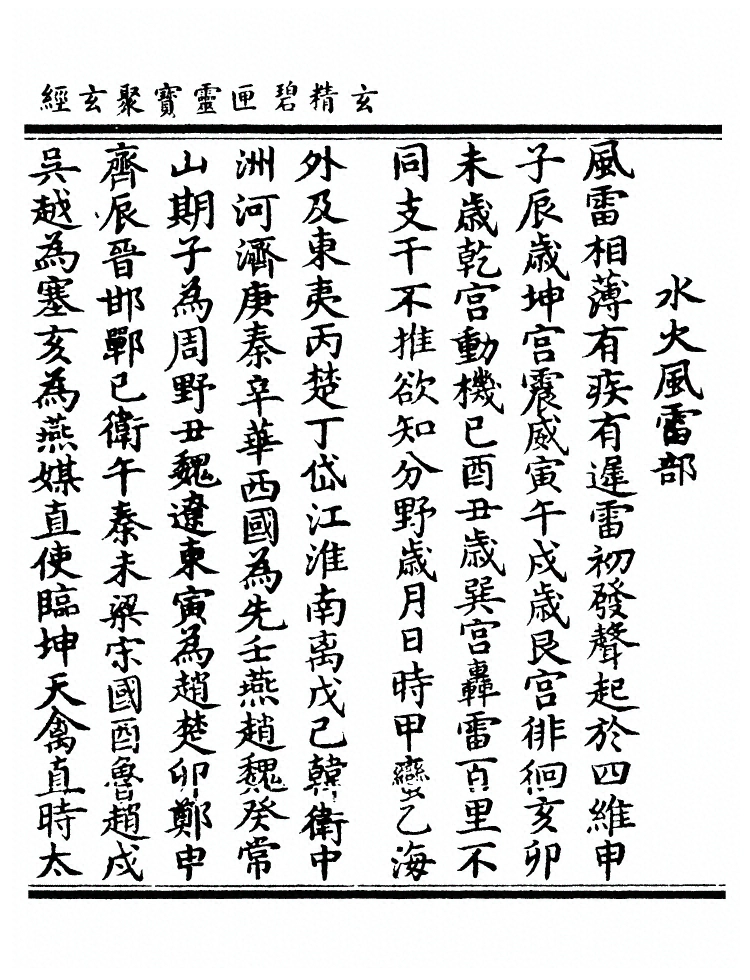 玄精碧匣靈寶聚玄經
水火風雷部
風雷相薄有疾有遲雷初發聲起於四維申
子辰歲坤宮震威寅午戌歲艮宮徘徊亥卯
未歲乾宮動機巳酉丑歲巽宮轟雷百里不
同支干不推欲知分野歲月日時甲蠻乙海
外及東夷丙楚丁岱江淮南离戊己韓衛中
洲河濟庚秦辛華西國為先壬燕趙魏癸常
山期子為周野丑魏遼東寅為趙楚卯鄭申
齊辰晉邯鄲巳衛午秦未梁宋國酉魯趙戌
吳越為塞亥為燕媒直使臨坤天禽直時太